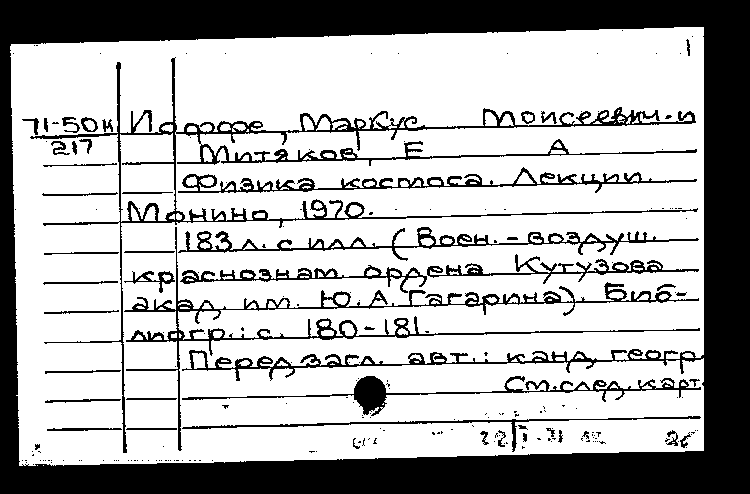 1
71-50н Иоффе, Маркус Моисеевич и
217 Митяков, Е А
Физика космоса. Лекции.
Монино, 1970.
183 л. с илл. (Воен.-воздуш.
краснознам. ордена Кутузова
акад. им. Ю.А. Гагарина). Биб-
лиогр.: с. 180-181.
Перед загл. авт.: канд. геогр.
См. след. карт.